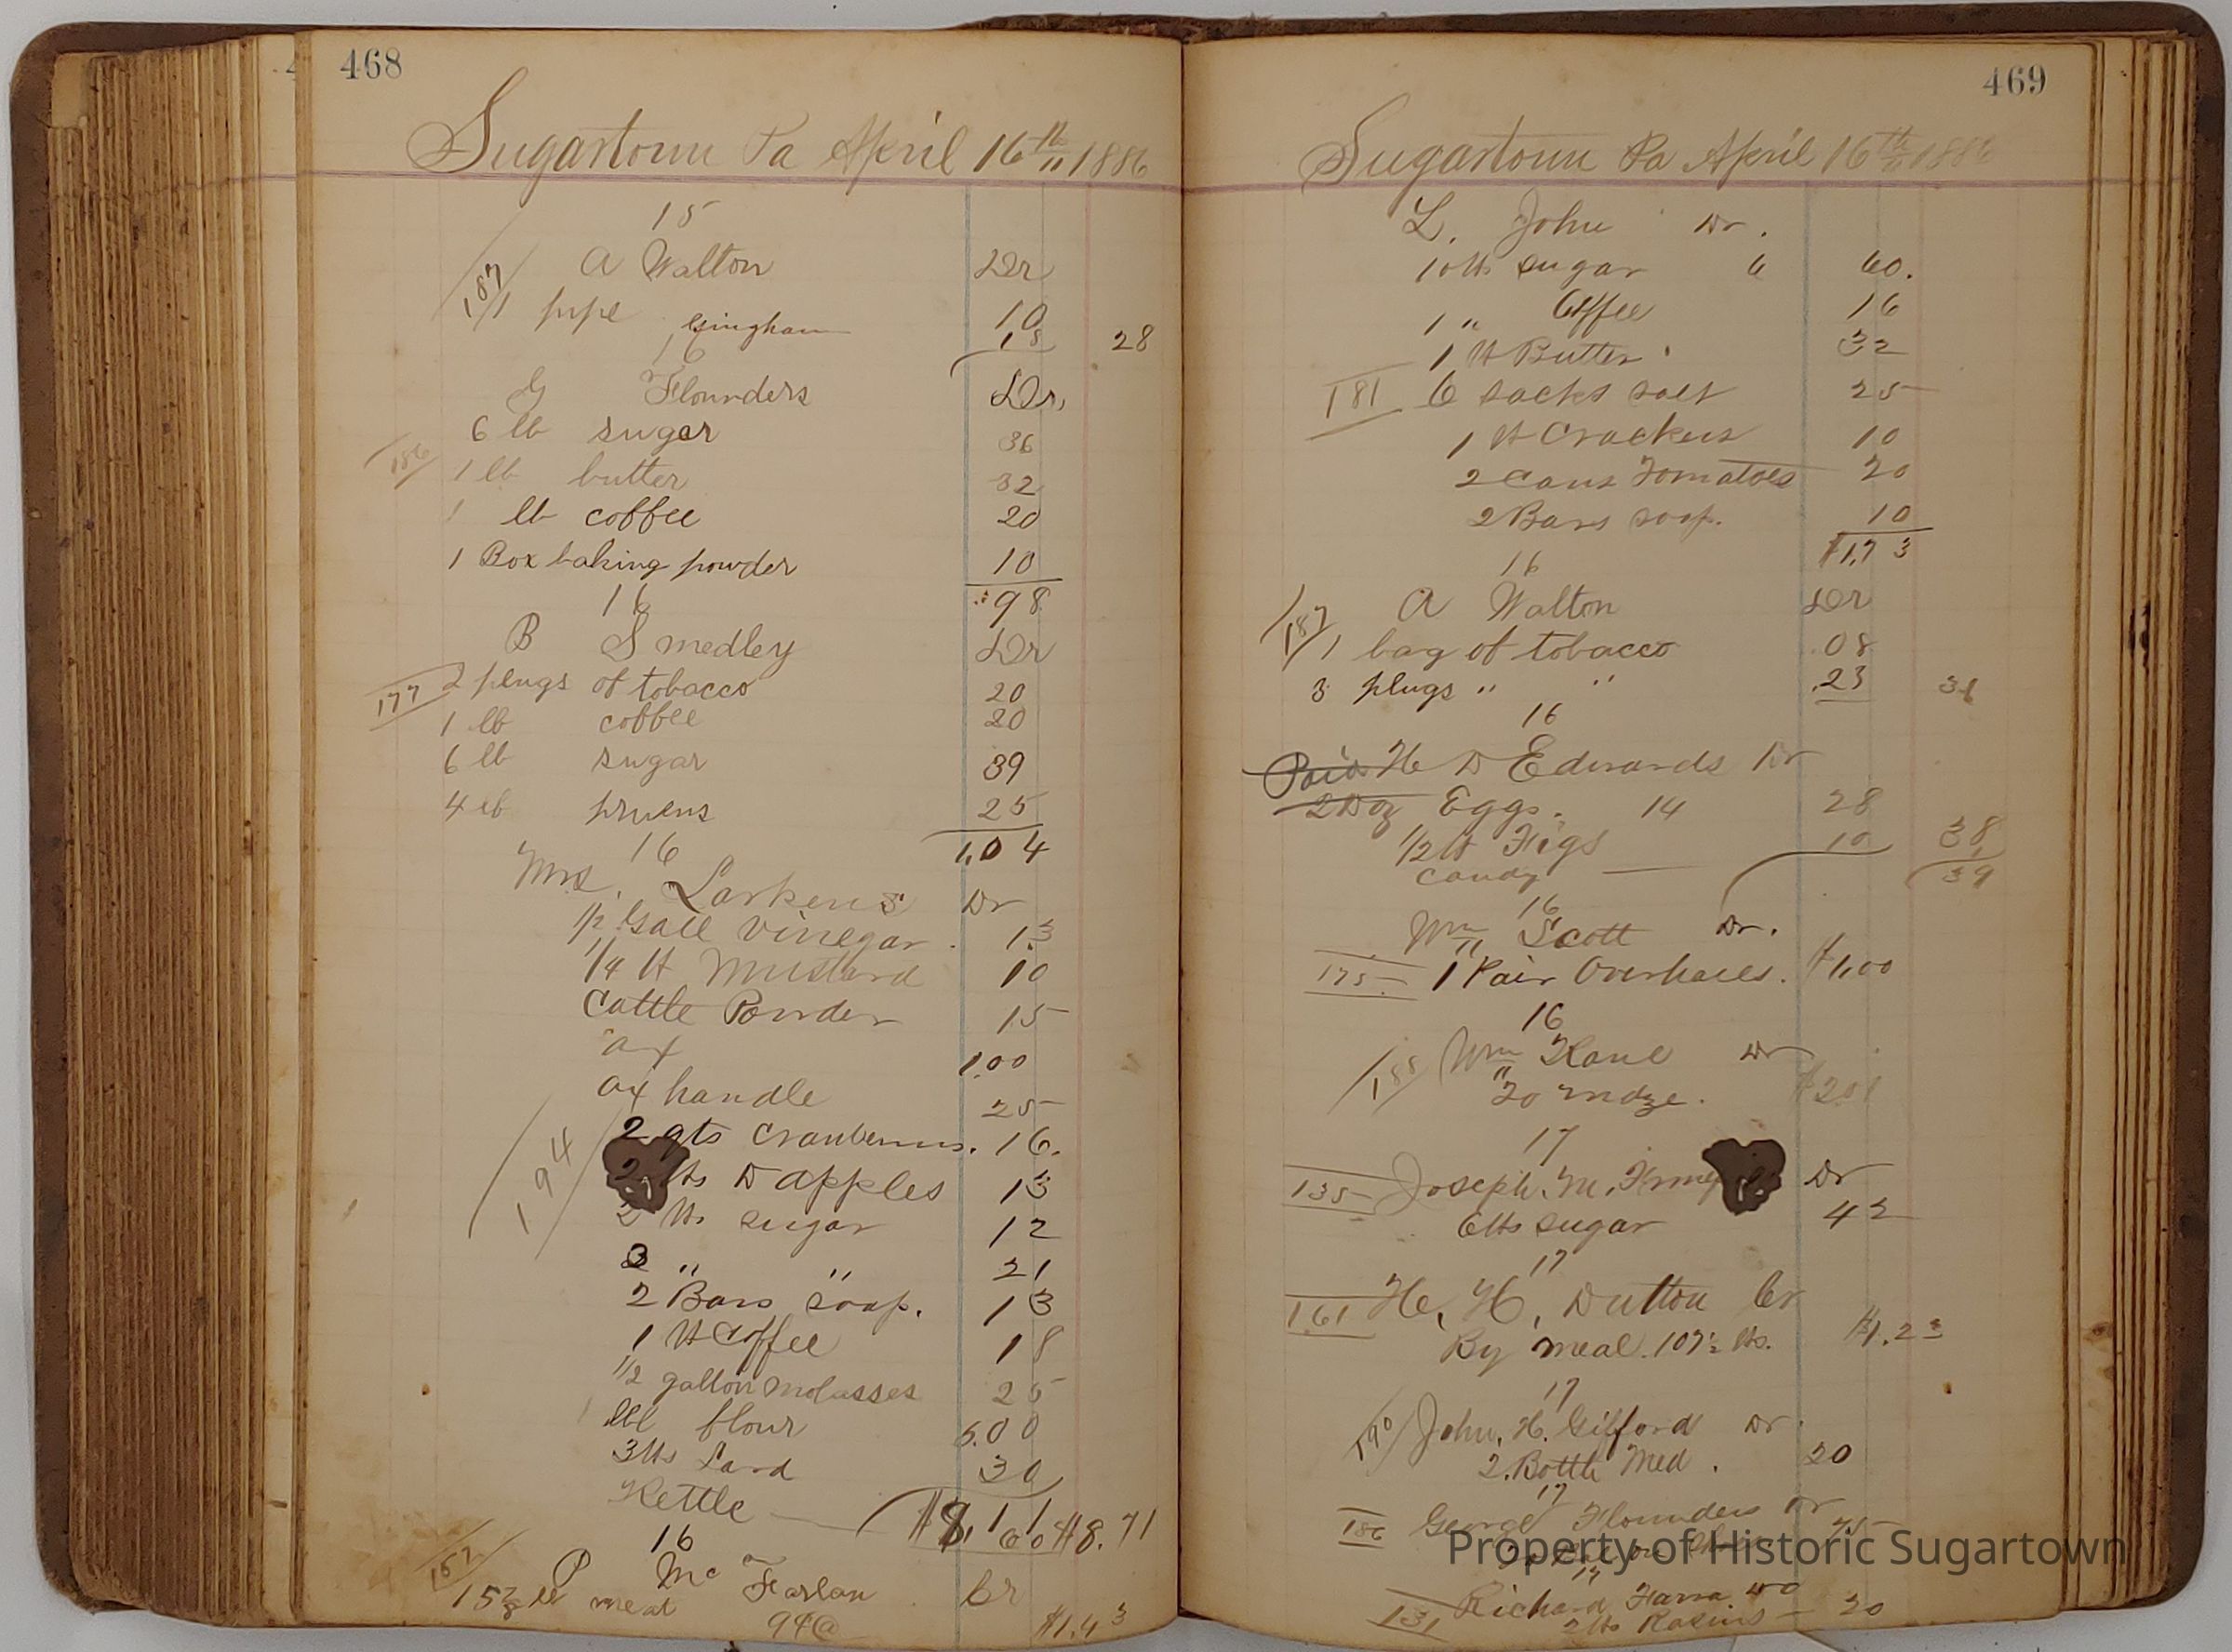 468
Sugartown Pa April 16th 1886
15
187 A Walton Dr
1 pipe 10
Gingham 18 28
16
G Flounders Dr
6 lb sugar 36
186 1 lb butter 32
1 lb coffee 20
1 Box baking powder 10
98
16
B Smedley Dr
177 2 plugs of tobacco 20
1 lb coffee 20
6 lb sugar 39
4 lb pruens 25
1.04
16
Mrs. Larkens Dr
1/2 Gall vinegar 13
1/4 lb Mustard 10
Cattle Powder 15
ax 1.00
ax handle 25
194 2 qts cranberries. 16.
2 lbs D apples 13
2 lbs sugar 12
3 " " 21
2 Bars soap. 13
1 lb Coffee 18
1/2 gallon molasses 25
bbl flour 5.00
3 lbs Lard 30
Kettle 60 $8.71
16
157 P McFarlan Cr
lb meat 9¢@ $1.43
469
Sugartown Pa April 16th 1886
L. John Dr.
10 lbs sugar 6 60.
1 " Coffee 16
1 lb Butter 32
181 6 sacks salt 25
1 lb Crackers 10
2 Cans Tomatoes 20
2 Bars soap. 10
$1.73
16
187 A Walton Dr
1 bag of tobacco .08
3 plugs " " .23 31
16
Paid H D Edwards Dr
2 Doz Eggs. 14 28
1/2 lb Figs 10 38
Candy 39
16
Wm Scott Dr.
175 1 Pair Overhalls. $1.00
16
188 Wm Kane Dr
To mdze. $201
17
135 Joseph. M. Dr
6 lbs sugar 42
17
161 H. H. Dutton Cr
By meal. 107½ lbs. $1.23
17
190 John. H. Gifford Dr.
2. Bottle Med. 20
17
186 George Flounders Dr
75
17
131 Richard Farra Dr
2 lbs Rasins 20
Property of Historic Sugartown